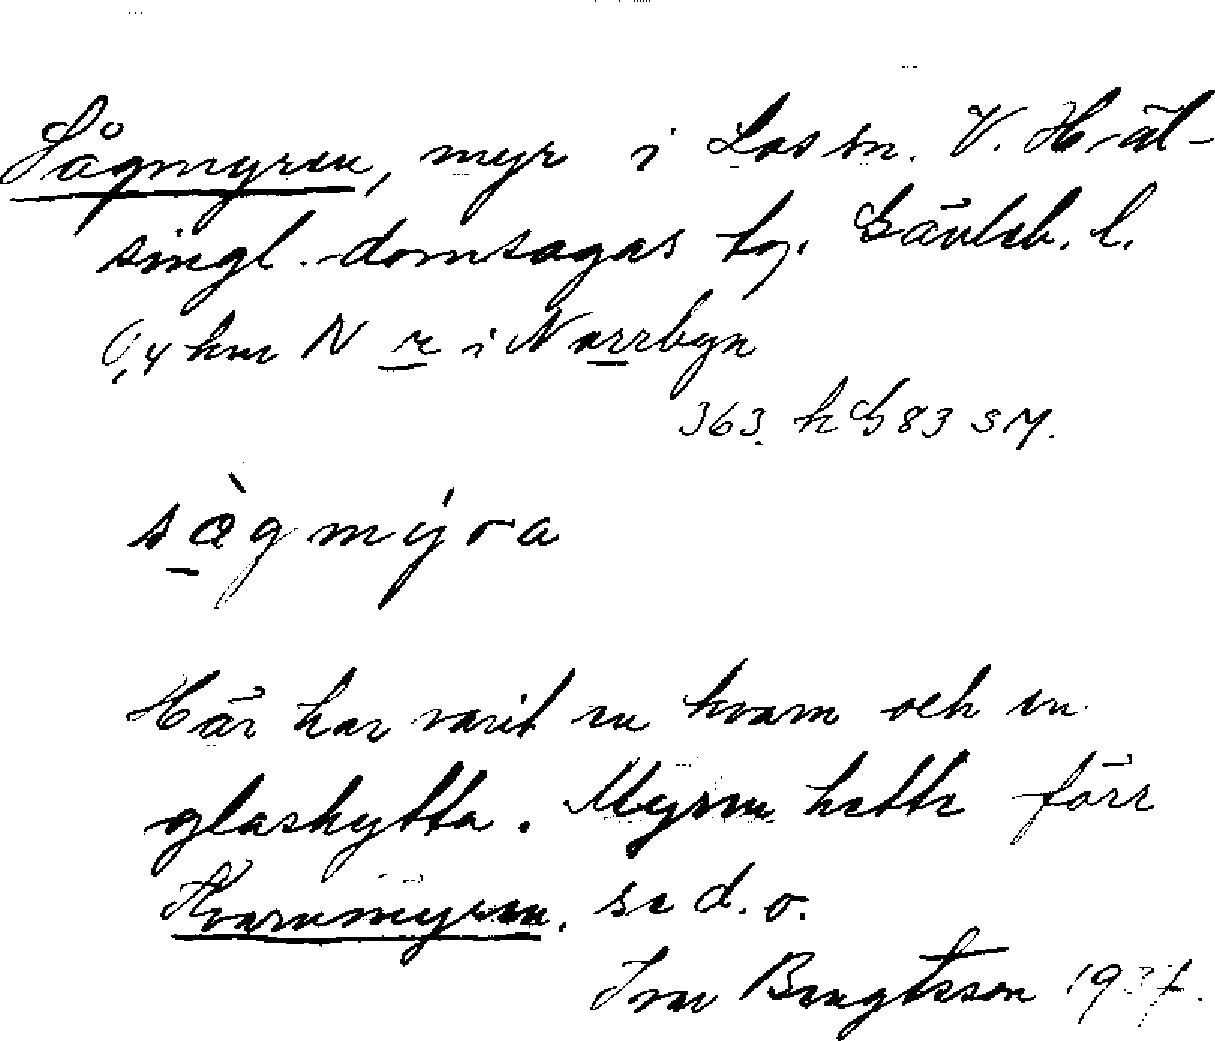 Sågmyren, myr i Los sn. V. Häl-
singl. domsagas tg. Gävleb. l.
0,4 km N r i Norrbyn
363. h G 83 SM.
sàgmýra
Här har varit en kvarn och en
glashytta. Myren hette förr
Kvarnmyren. se d. o.
Bengtsson 1937.